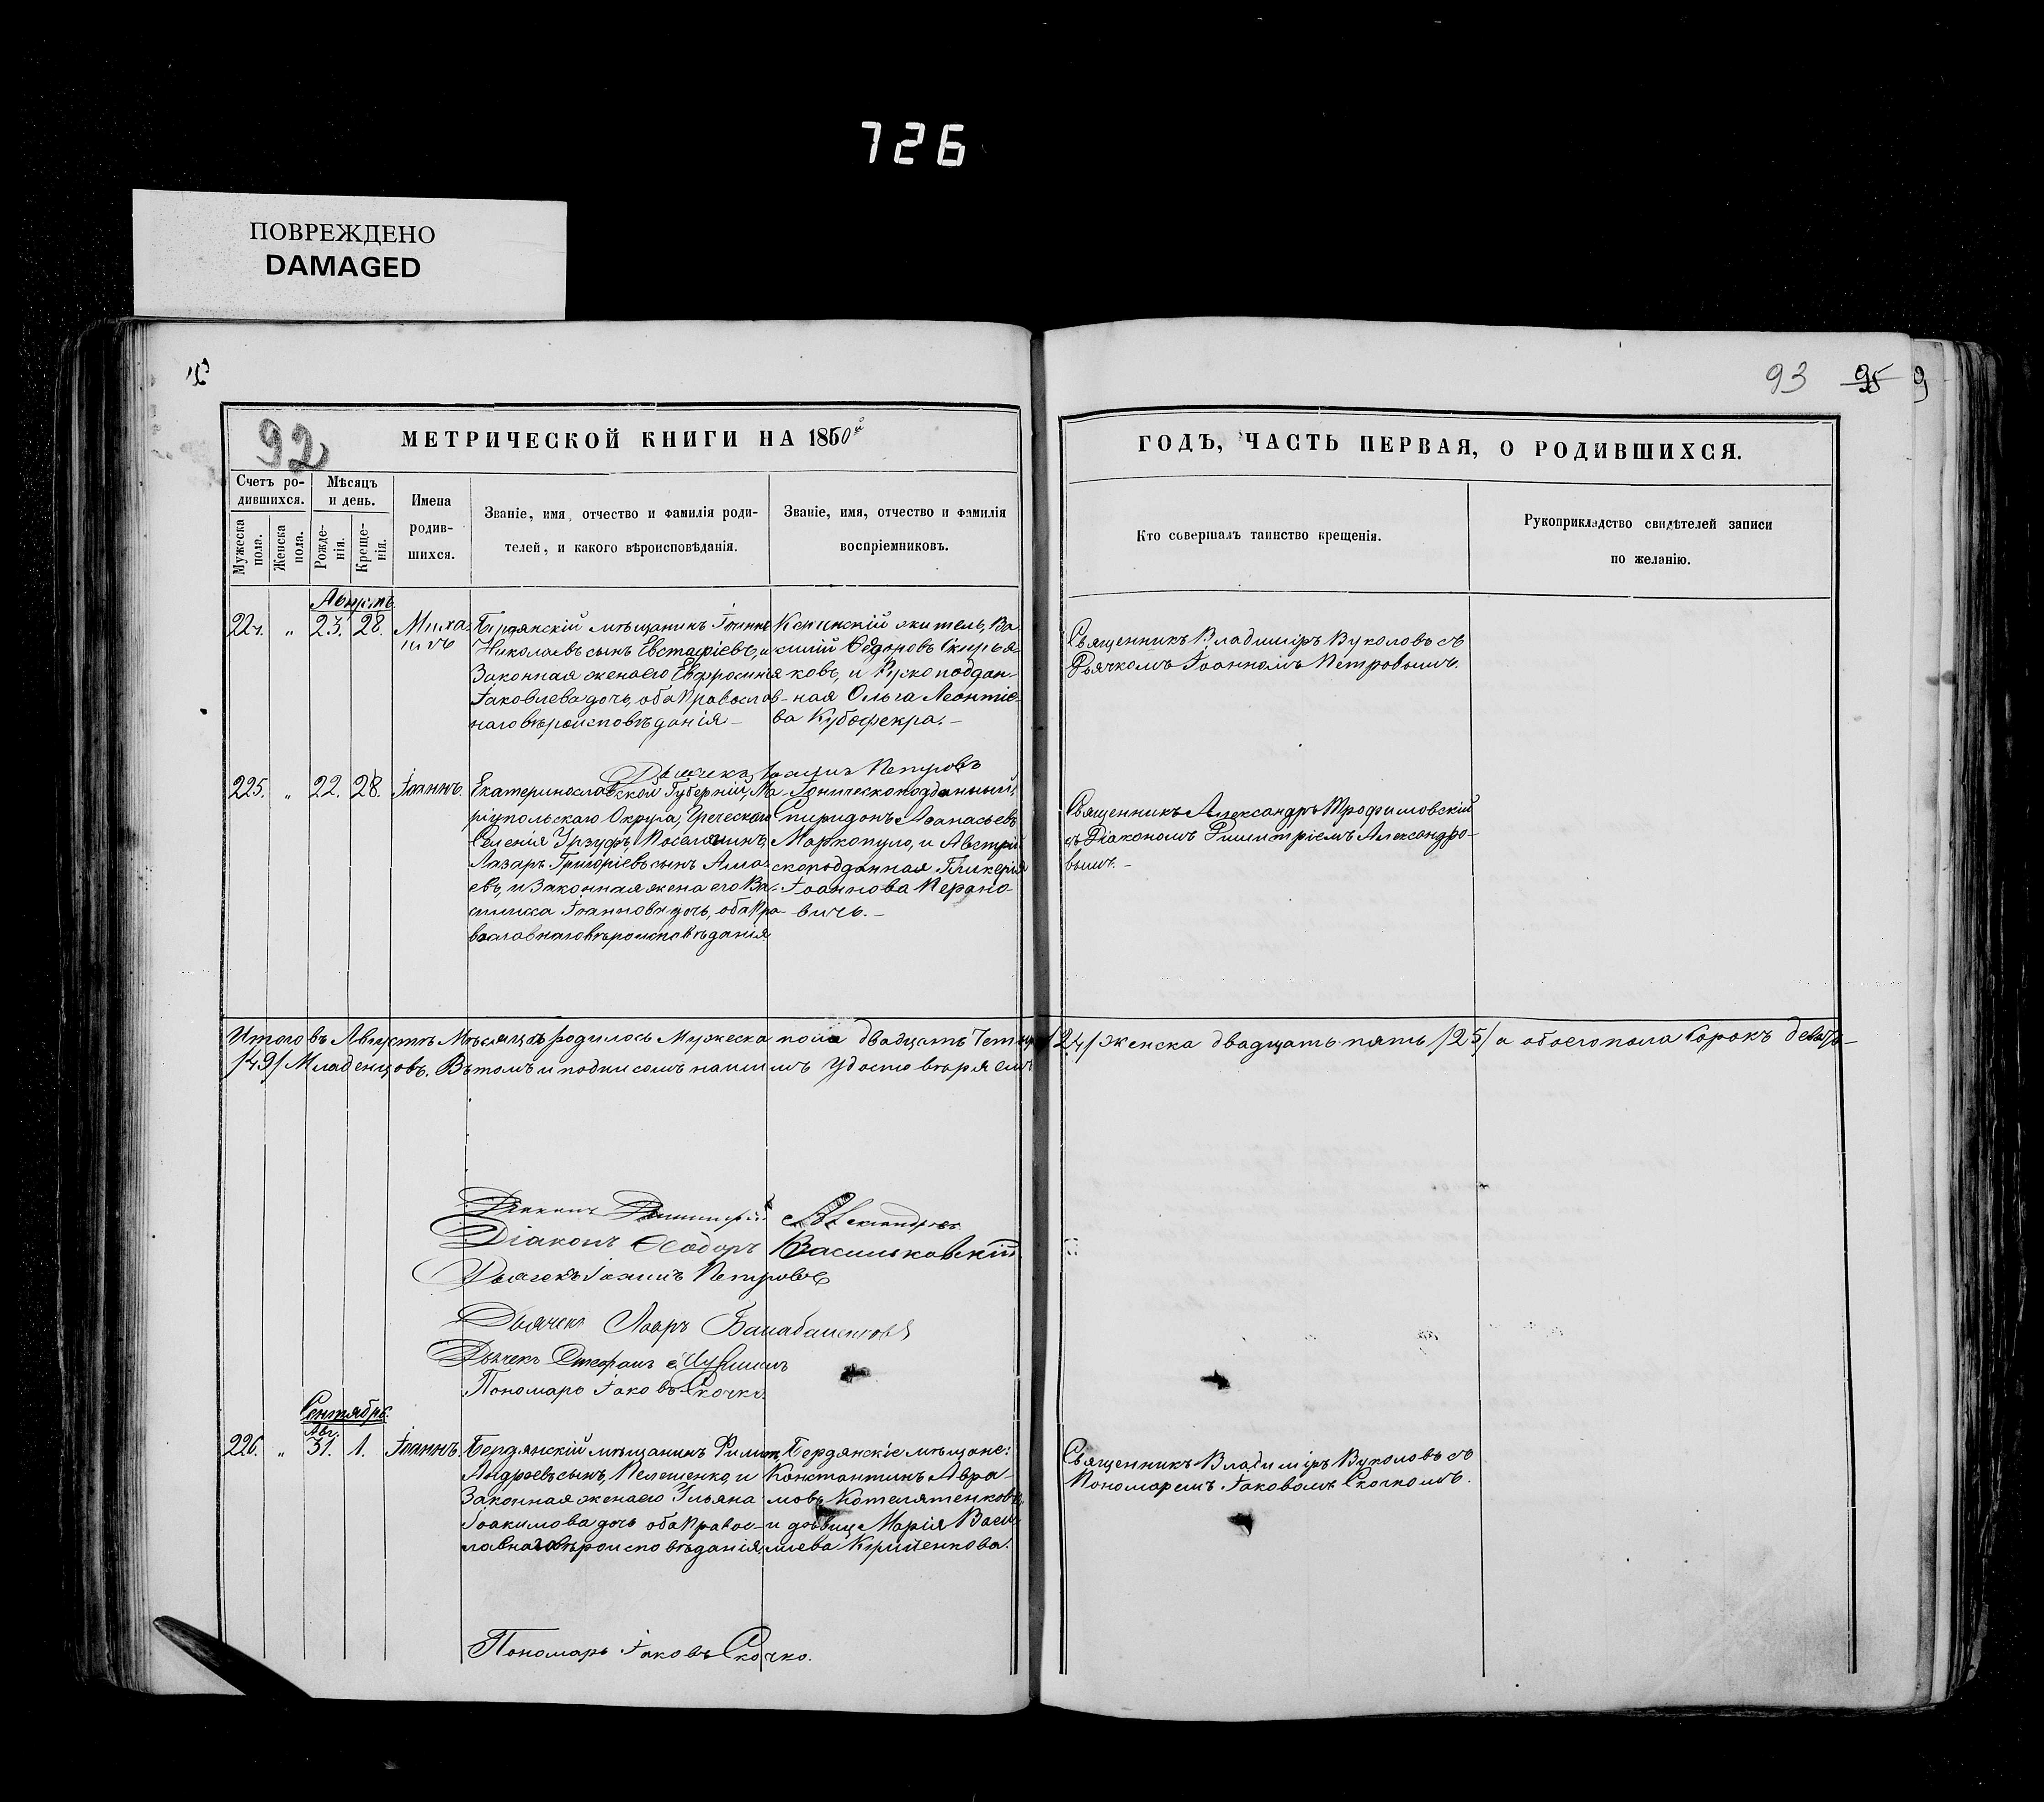 726
ПОВРЕЖДЕНО
DAMAGED
93 95 9
92
МЕТРИЧЕСКОЙ КНИГИ НА 1860й
ГОДЪ, ЧАСТЬ ПЕРВАЯ, О РОДИВШИХСЯ.
Счетъ ро-
дившихся.
Мужеска пола.
Женска пола.
Мѣсяцъ
и день.
Рожде-
нія.
Креще-
нія.
Имена
родив-
шихся.
Званіе, имя, отчество и фамилія роди-
телей, и какого вѣроисповѣданія.
Званіе, имя, отчество и фамилія
воспріемниковъ.
Кто совершалъ таинство крещенія.
Рукоприкладство свидѣтелей записи
по желанію.
Августъ
224. " 23. 28. Миха-
илъ
Бердянскій мѣщанинъ Іоаннъ
Николаевъ сынъ Евстафіевъ, и
Законная жена его Евфросинія
Іаковлева дочь, оба Православ-
наго вѣроисповѣданія
житель, Ва-
силій Ѳедоровъ
ковъ, и
ная Ольга Леонтіе-
ва
Священникъ Владиміръ Вуколовъ съ
Дьячкомъ Іоанномъ Петровымъ.
Дьячекъ Іоаннъ Петровъ
225. " 22. 28. Іоаннъ.
Екатеринославской Губерніи, Ма-
ріупольскаго Округа, Греческаго
Селенія Урзуфъ, Поселянинъ,
Лазарь Григоріевъ сынъ
евъ, и Законная жена его Ва-
Іоаннова дочь, оба Пра-
вославнаго вѣроисповѣданія
Іоническоподданный,
Спиридонъ Аѳанасьевъ
Маркопуло, и Австрій-
скоподданная Гликерія
Іоаннова
вичь.
Священникъ Александръ Трофимовскій
съ Діакономъ Димитріемъ Александро-
вымъ.
Итого въ Августѣ Мѣсяцѣ родилось Мужеска пола двадцать четыре /24/ женска двадцать пять /25/ а обоего пола сорокъ девять
/49/ Младенцовъ. Въ томъ и подписомъ нашимъ удостовѣряемъ
Діаконъ Димитрій Александровъ
Діаконъ Ѳеодоръ Васильковскій
Дьячекъ Іоаннъ Петровъ
Дьячекъ Лавръ
Дьячекъ Стефанъ
Пономарь Іаковъ Скочко.
Сентябрь.
Авг.
226. " 31. 1. Іоаннъ.
Бердянскій мѣщанинъ
Андреевъ сынъ, Пелешенко, и
Законная жена его Ульяна
Іоакимова дочь оба Правос-
лавнаго вѣроисповѣданія,
Бердянскіе мѣщане:
Константинъ Авра-
мовъ Котелятенковъ,
и дѣвица Марія Васи-
льева
Священникъ Владиміръ Вуколовъ съ
Пономаремъ Іаковомъ Скочкомъ.
Пономарь Іаковъ Скочко.